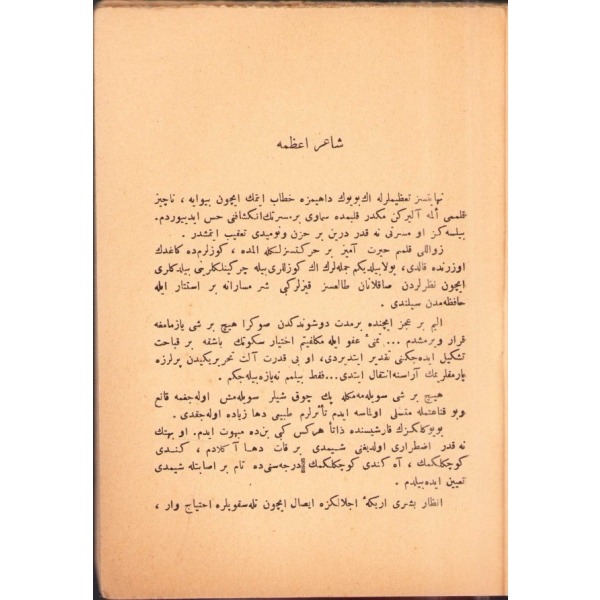 شاعر اعظمه
نهایتسز تعظیملرله اك بویوك داهیمزه خطاب ایتمك ایچون بیوایه ، ناچیز
قلممی ألمه آلیركن مكدر قلبمده سماوی بر مسرتك انكشافنی حس ایدییوردم .
بیلسه‌كز او مسرتی نه قدر درین بر حزن و نومیدی تعقیب ایتمشدر .
زواللی قلمم حیرت آمیز بر حركتسزلكله المده ، كوزلرم‌ده كاغدك
اوزرنده قالدی، بولابیلدیكم جمله‌لرك اك كوزللری بیله چركینلكلرینی بیلدكلری
ایچون نظرلردن صاقلانان طالعسز قیزلر كبی شرمسارانه بر استتار ایله
حافظه‌مدن سیلندی .
الیم بر عجز ایچنده برمدت دوشوندكدن صوكرا هیچ بر شی یازمامغه
قرار ویرمشدم ... عفو ایله مكلفیتم اختیار سكوتك باشقه بر قباحت
تشكیل ایده‌جكنی تقدیر ایتدیردی، او بی قدرت آلت تحریر یكیدن پر لرزه
پارمقلریمك آراسنه انتقال ایتدی ... فقط بیلمم نه یازه‌بیله‌جكم .
هیچ بر شی سویله‌مه‌مكله پك چوق شیلر سویله‌مش اوله‌جغمه قانع
وبو قناعتمله متسلی اولماسه ایدم تأثرلرم طبیعی دها زیاده اوله‌جقدی .
بویوكلككزك قارشیسنده ذاتاً هركس كبی بن‌ده مبهوت ایدم . او بهتك
نه قدر اضطراری اولدیغنی شیمدی بر قات دها آكلادم ، كندی
كوچكلكمك ، آه كندی كوچكلكمك درجه‌سنی‌ده تام بر اصابتله شیمدی
تعیین ایده‌بیلدم .
انظار بشری اریكهٔ اجلالكزه ایصال ایچون تله‌سقوپلره احتیاج وار ،